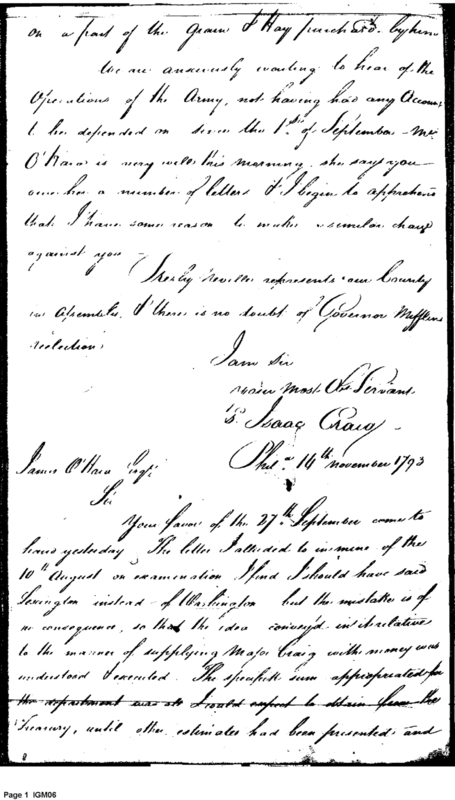 on a part of the Grain & Hay purchasd. by him
We are anxiously waiting to hear of the
Operations of the Army, not having had any Account
to be depended on since the 1st of September - Mrs
O'Hara is very well this morning. she says you
owe her a number of letters & I begin to apprehend
that I have some reason to make a similar charge
against you -
Presley Neville represents our County
in Assembly. & there is no doubt of Governor Mifflins
reelection
I am Sir
your most Obt Servant
Isaac Craig -
Phila. 14th november 1793
James O'Hara Esqr.
Sir
Your favor of the 27th. September came to
hand yesterday The letter I alluded to in mine of the
10th August on examination I find I should have said
Lexington instead of Washington but the mistake is of
no consequence, so that the idea convey'd in it relative
to the manner of supplying Major Craig with money was
understood & executed. The specific sum appropriated for
the department was all I could expect to obtain from the
Treasury, until other estimates had been presented and
Page 1 IGM06